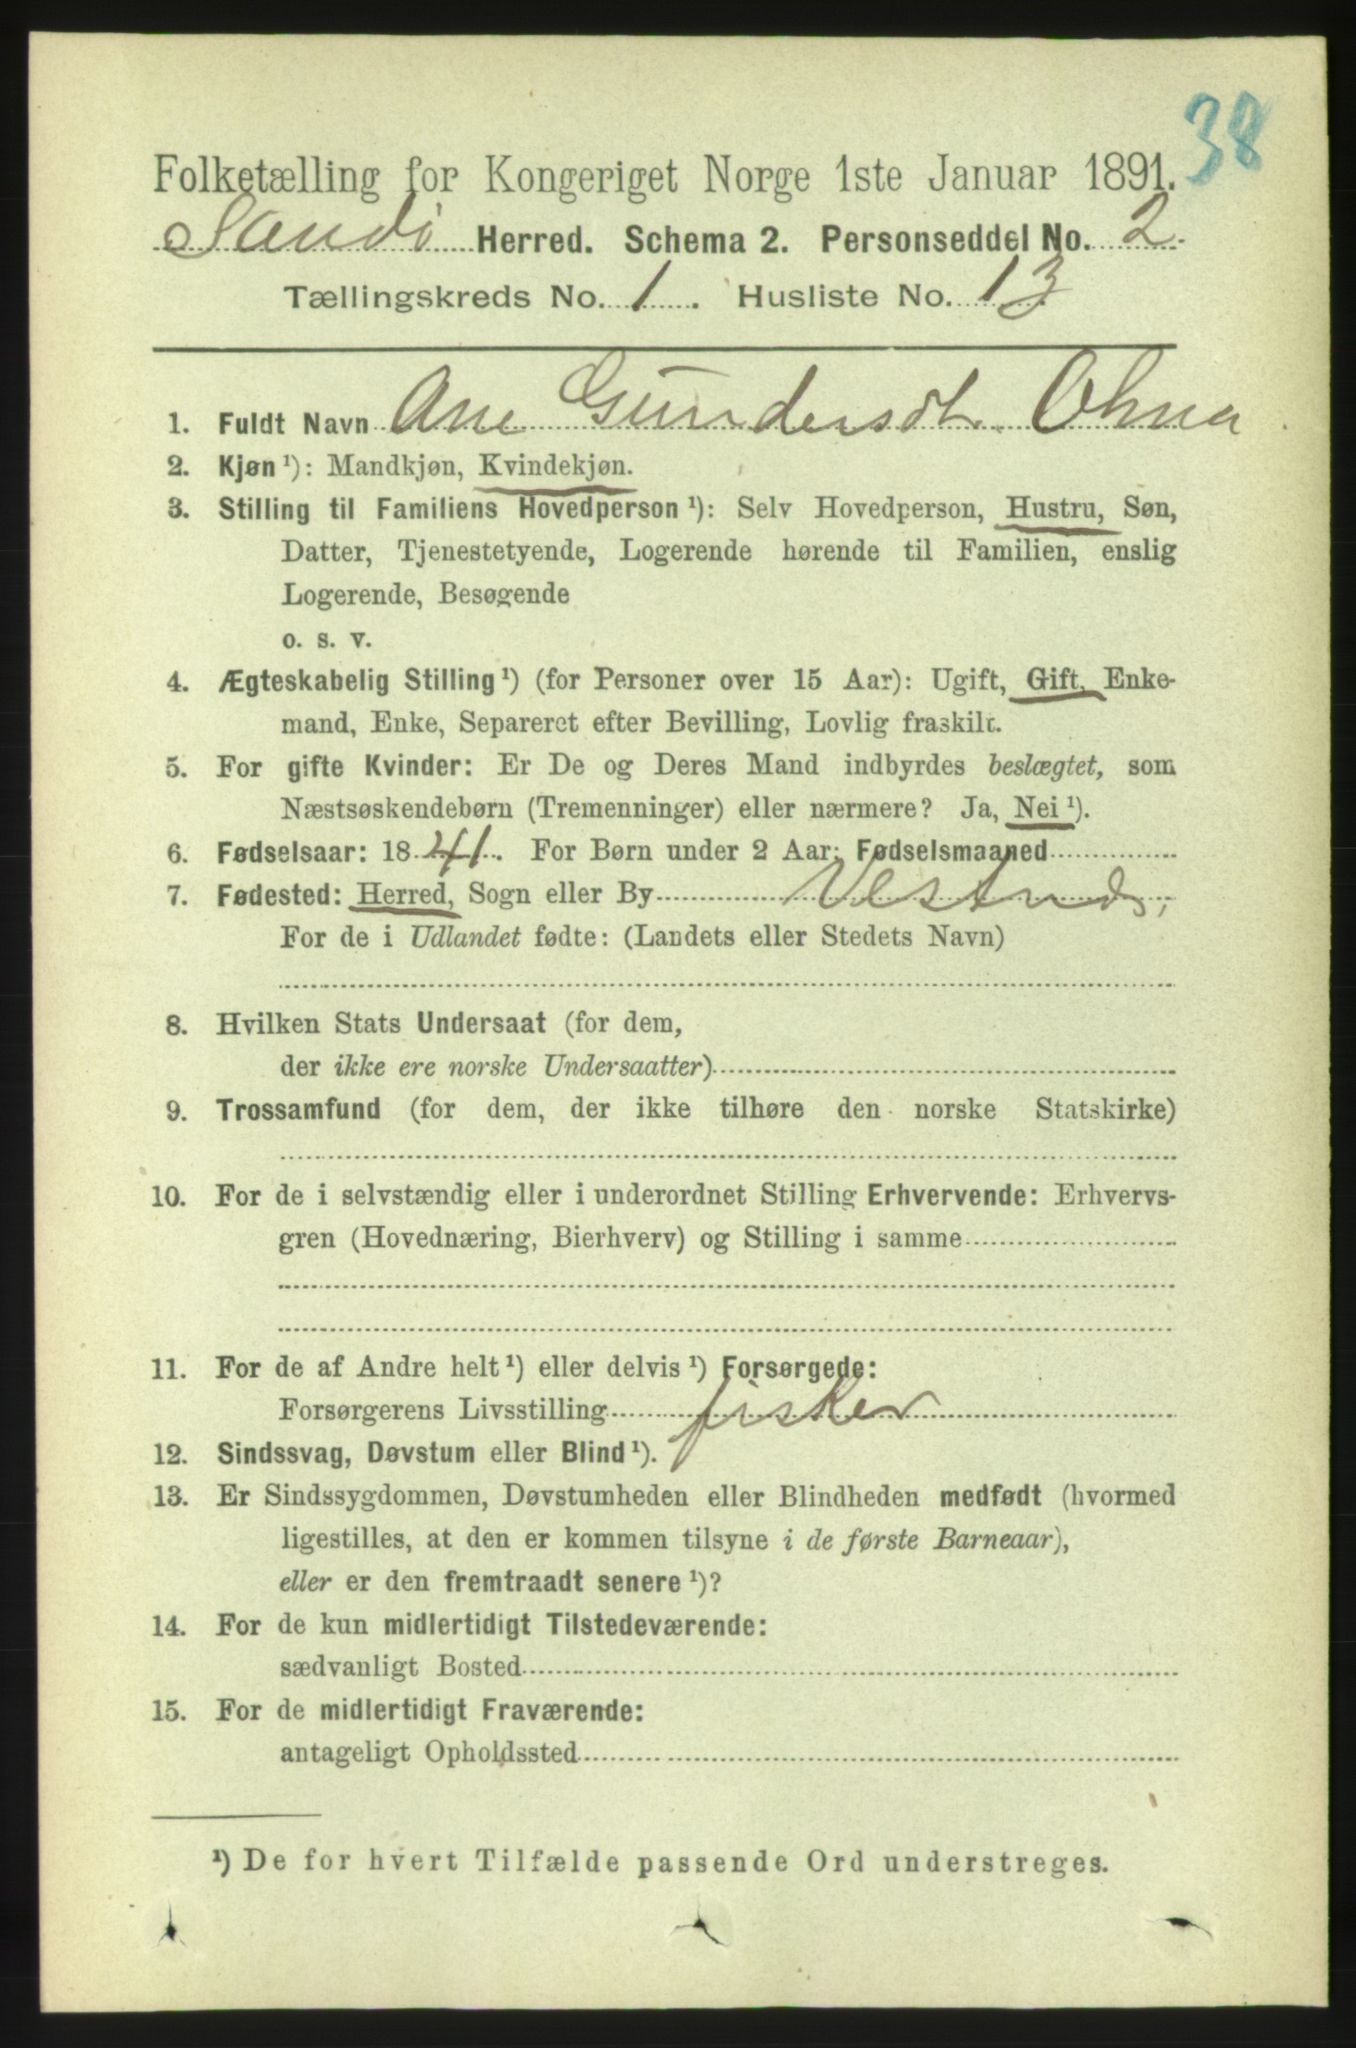 38
Folketælling for Kongeriget Norge 1ste Januar 1891.
Sandö Herred. Schema 2. Personseddel No. 2.
Tællingskreds No. 1. Husliste No. 13
1. Fuldt Navn Ane Gundersdt. Ohna
2. Kjøn¹): Mandkjøn, Kvindekjøn.
3. Stilling til Familiens Hovedperson¹): Selv Hovedperson, Hustru, Søn,
Datter, Tjenestetyende, Logerende hørende til Familien, enslig
Logerende, Besøgende
o. s. v.
4. Ægteskabelig Stilling¹) (for Personer over 15 Aar): Ugift, Gift, Enke-
mand, Enke, Separeret efter Bevilling, Lovlig fraskilt.
5. For gifte Kvinder: Er De og Deres Mand indbyrdes beslægtet, som
Næstsøskendebørn (Tremenninger) eller nærmere? Ja, Nei¹).
6. Fødselsaar: 1841. For Børn under 2 Aar: Fødselsmaaned
7. Fødested: Herred, Sogn eller By Vestnes,
For de i Udlandet fødte: (Landets eller Stedets Navn)
8. Hvilken Stats Undersaat (for dem,
der ikke ere norske Undersaatter)
9. Trossamfund (for dem, der ikke tilhøre den norske Statskirke)
10. For de i selvstændig eller i underordnet Stilling Erhvervende: Erhvervs-
gren (Hovednæring, Bierhverv) og Stilling i samme
11. For de af Andre helt¹) eller delvis¹) Forsørgede:
Forsørgerens Livsstilling fisker
12. Sindssvag, Døvstum eller Blind¹).
13. Er Sindssygdommen, Døvstumheden eller Blindheden medfødt (hvormed
ligestilles, at den er kommen tilsyne i de første Barneaar),
eller er den fremtraadt senere¹)?
14. For de kun midlertidigt Tilstedeværende:
sædvanligt Bosted
15. For de midlertidigt Fraværende:
antageligt Opholdssted
¹) De for hvert Tilfælde passende Ord understreges.